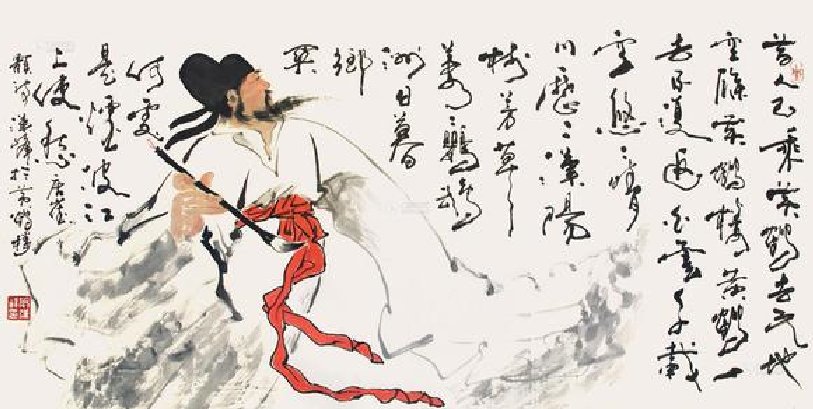 昔人已乘黄鹤去 此地
空馀黄鹤楼 黄鹤一
去不复返 白云千载
空悠悠 晴
川历历汉阳
树 芳草
萋萋鹦鹉
洲 日暮
乡
关
何处
是 烟波江
上使愁 唐崔
颢诗